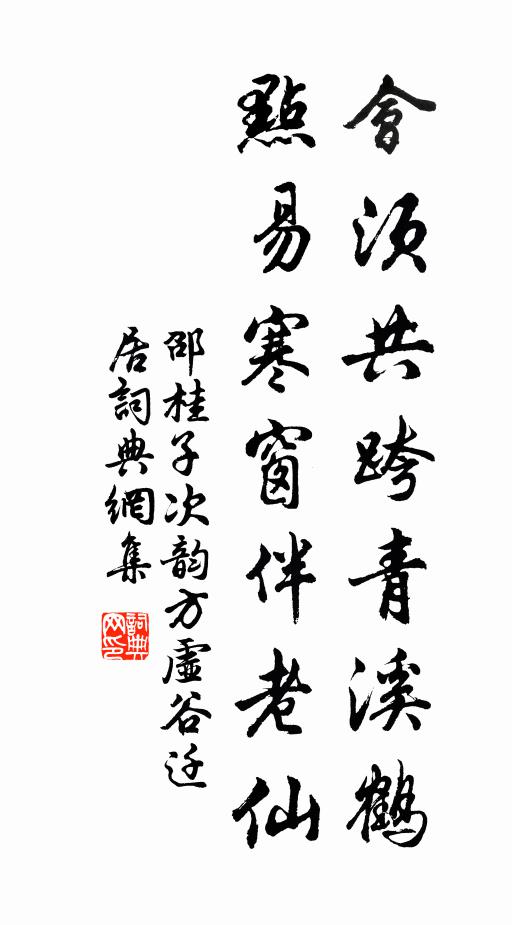 會須共跨青溪鶴
點易寒窗伴老仙
邵桂子次韵方虛谷迁
居詞典網集
詞典
网印